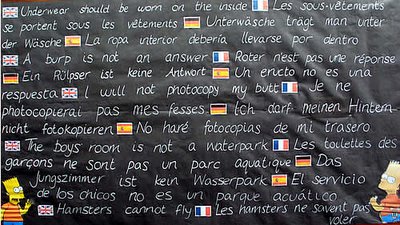 Underwear should be worn on the inside Les sous-vêtements
se portent sous les vêtements Unterwäsche trägt man unter
der Wäsche La ropa interior debería llevarse por dentro
A burp is not an answer Roter n'est pas une réponse
Ein Rülpser ist keine Antwort Un eructo no es una
respuesta I will not photocopy my butt Je ne
photocopierai pas mes fesses Ich darf meinen Hintern
nicht fotokopieren No haré fotocopias de mi trasero
The boys room is not a waterpark Les toilettes des
garçons ne sont pas un parc aquatique Das
Jungszimmer ist kein Wasserpark El servicio
de los chicos no es un parque acuático
Hamsters cannot fly Les hamsters ne savent pas
voler